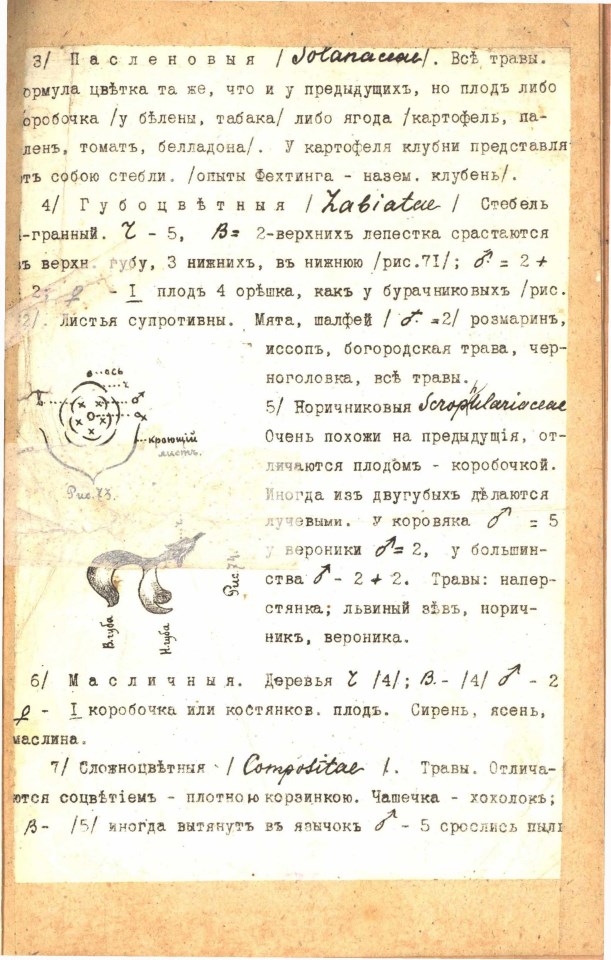 3/ Пасленовыя /Solanaceae/. Всѣ травы.
ормула цвѣтка та же, что и у предыдущихъ, но плодъ либо
оробочка /у бѣлены, табака/ либо ягода /картофель, па-
ленъ, томатъ, белладона/. У картофеля клубни представля
тъ собою стебли. /опыты Фехтинга - назем. клубень/.
4/ Губоцвѣтныя /Labiatae/ Стебель
-гранный. Ч - 5, В= 2-верхнихъ лепестка срастаются
ъ верхн. губу, 3 нижнихъ, въ нижнюю /рис.71/; ♂ = 2 +
2; ♀ - I плодъ 4 орѣшка, какъ у бурачниковыхъ /рис.
2/. Листья супротивны. Мята, шалфей / ♂ =2/ розмаринъ,
иссопъ, богородская трава, чер-
ноголовка, всѣ травы.
5/ Норичниковыя Scrophulariaceae
Очень похожи на предыдущія, от-
личаются плодомъ - коробочкой.
Иногда изъ двугубыхъ дѣлаются
лучевыми. У коровяка ♂ = 5
у вероники ♂= 2, у большин-
ства ♂ - 2 + 2. Травы: напер-
стянка; львиный зѣвъ, норич-
никъ, вероника.
ось
ч
в
♂
♀
кроющій
листъ.
Рис. 73.
ч.
В.губа
Н.губа
Рис 74.
6/ Масличныя. Деревья Ч /4/; В.- /4/ ♂ - 2
♀ - I коробочка или костянков. плодъ. Сирень, ясень,
маслина.
7/ Сложноцвѣтныя /Compositae/. Травы. Отлича-
ются соцвѣтіемъ - плотною корзинкою. Чашечка - хохолокъ;
В- /5/ иногда вытянутъ въ язычокъ ♂ - 5 срослись пыль